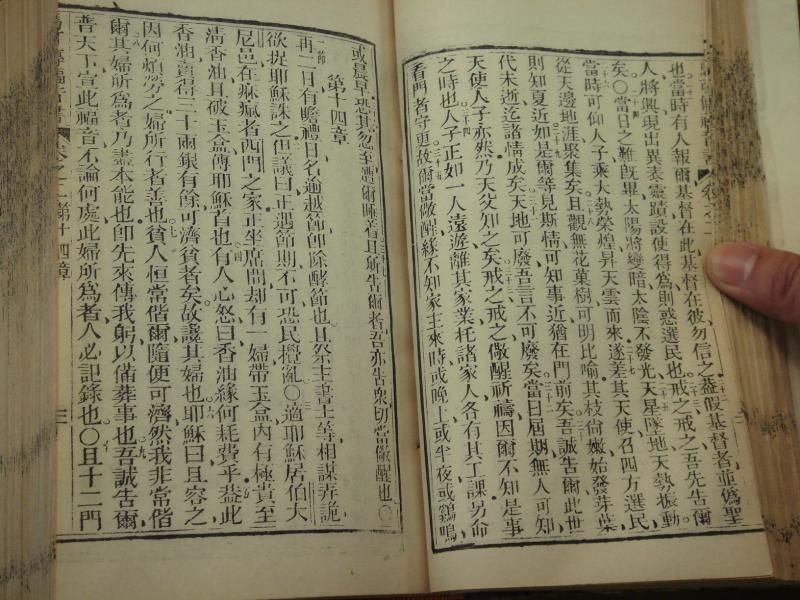 也當時有人報爾基督在此基督在彼勿信之蓋假基督者並僞聖
人將興現出異表靈蹟設使得爲則惑選民也戒之戒之吾先告爾
矣○當日之難旣畢太陽將變暗太陰不發光天星墜地天勢振動
當時可仰人子乘大勢榮煌昇天雲而來遂差其天使召四方選民
從天邊地涯聚集矣且觀無花菓樹可明比喻其枝尙嫩始發芽葉
則知夏近如是爾等見斯情可知事近猶在門前矣吾誠告爾此世
代未逝迄諸情成矣天地可廢吾言不可廢矣當日屆期無人可知
天使人子亦然乃天父知之矣戒之戒之儆醒祈禱因爾不知是事
之時也人子正如一人遠遊離其家業托諸家人各有其工課另命
看門者守更故爾當儆醒緣不知家主來時或晚上或半夜或鷄鳴
或晨早恐其忽至遭爾睡着且所告爾者吾亦告衆切當儆醒也○
第十四章
再二日有瞻禮日名逾越節卽除酵節也且祭主書士等相謀弄詭
欲捉耶穌誅之但議曰正遇節期不可恐民攪亂○適耶穌居伯大
尼邑在痳瘋者西門之家正坐席間却有一婦帶玉盒內有極貴至
淸香油且破玉盒傅耶穌首也有人心怒曰香油緣何耗費乎蓋此
香油賣得三十兩銀有餘可濟貧者矣故譏其婦也耶穌曰且容之
因何煩勞之婦所行者善也貧人恒常偕爾隨便可濟然我非常偕
爾其婦所爲者乃盡本能也卽先來傅我躬以備葬事也吾誠告爾
普天下宣此福音不論何處此婦所爲者人必記錄也○且十二門
卷之二 第十四章